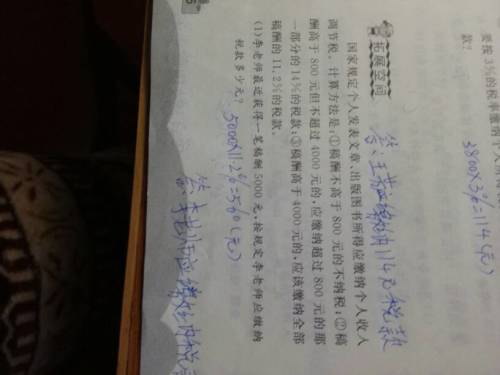 要按3%的税率缴
款?
3800×3%=114(元)
答:王
缴纳114元税款
拓展空间
国家规定个人发表文章、出版图书所得应缴纳个人收入
调节税。计算方法是:①稿酬不高于800元的不纳税;②稿
酬高于800元但不超过4000元的,应缴纳超过800元的那
一部分的14%的税款;③稿酬高于4000元的,应该缴纳全部
稿酬的11.2%的税款。
(1)李老师最近获得一笔稿酬5000元,按规定李老师应缴纳
税款多少元?
5000×11.2%=560(元)
答:李老师应缴纳税